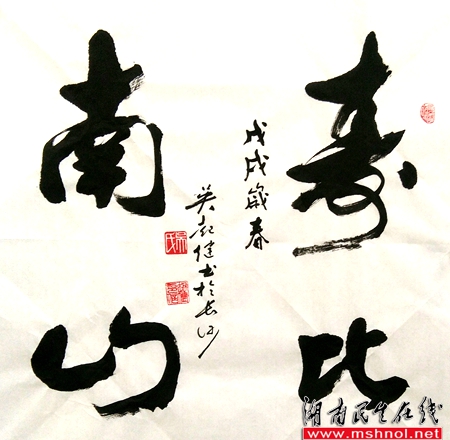 寿比
南山
戊戌歲春
健书於长沙
湖南民生在线
www.mshnol.net